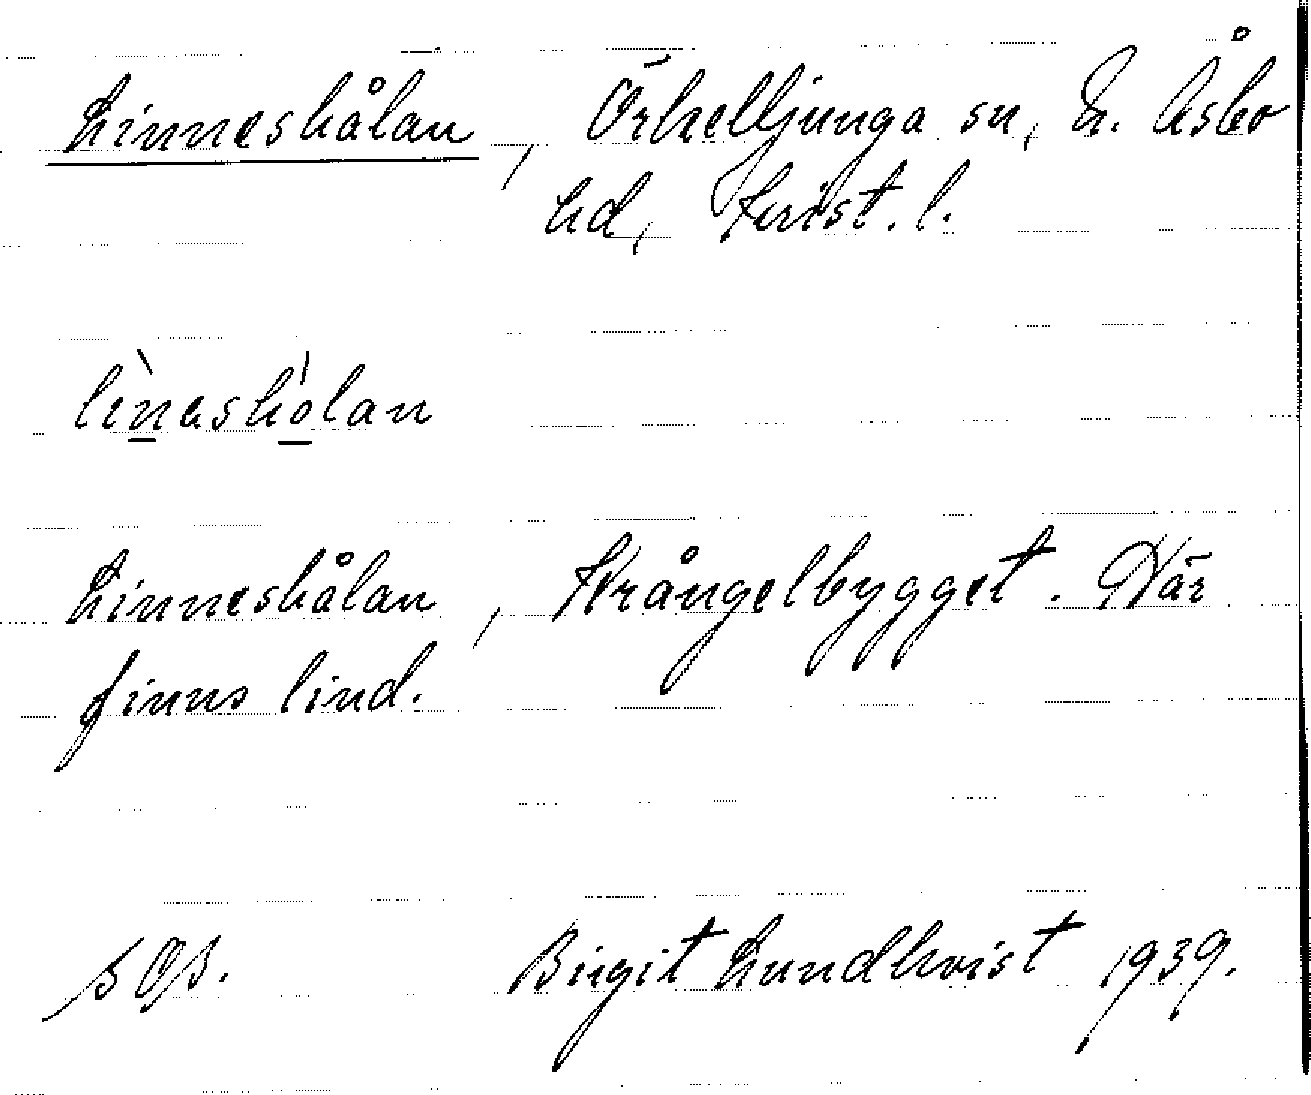 Linneshålan, Örkelljunga sn, N. Åsbo
hd, Krist. l.
lìneshólan
Linneshålan, Krångelbygget. Här
finns lind.
Birgit Lundkvist 1939.